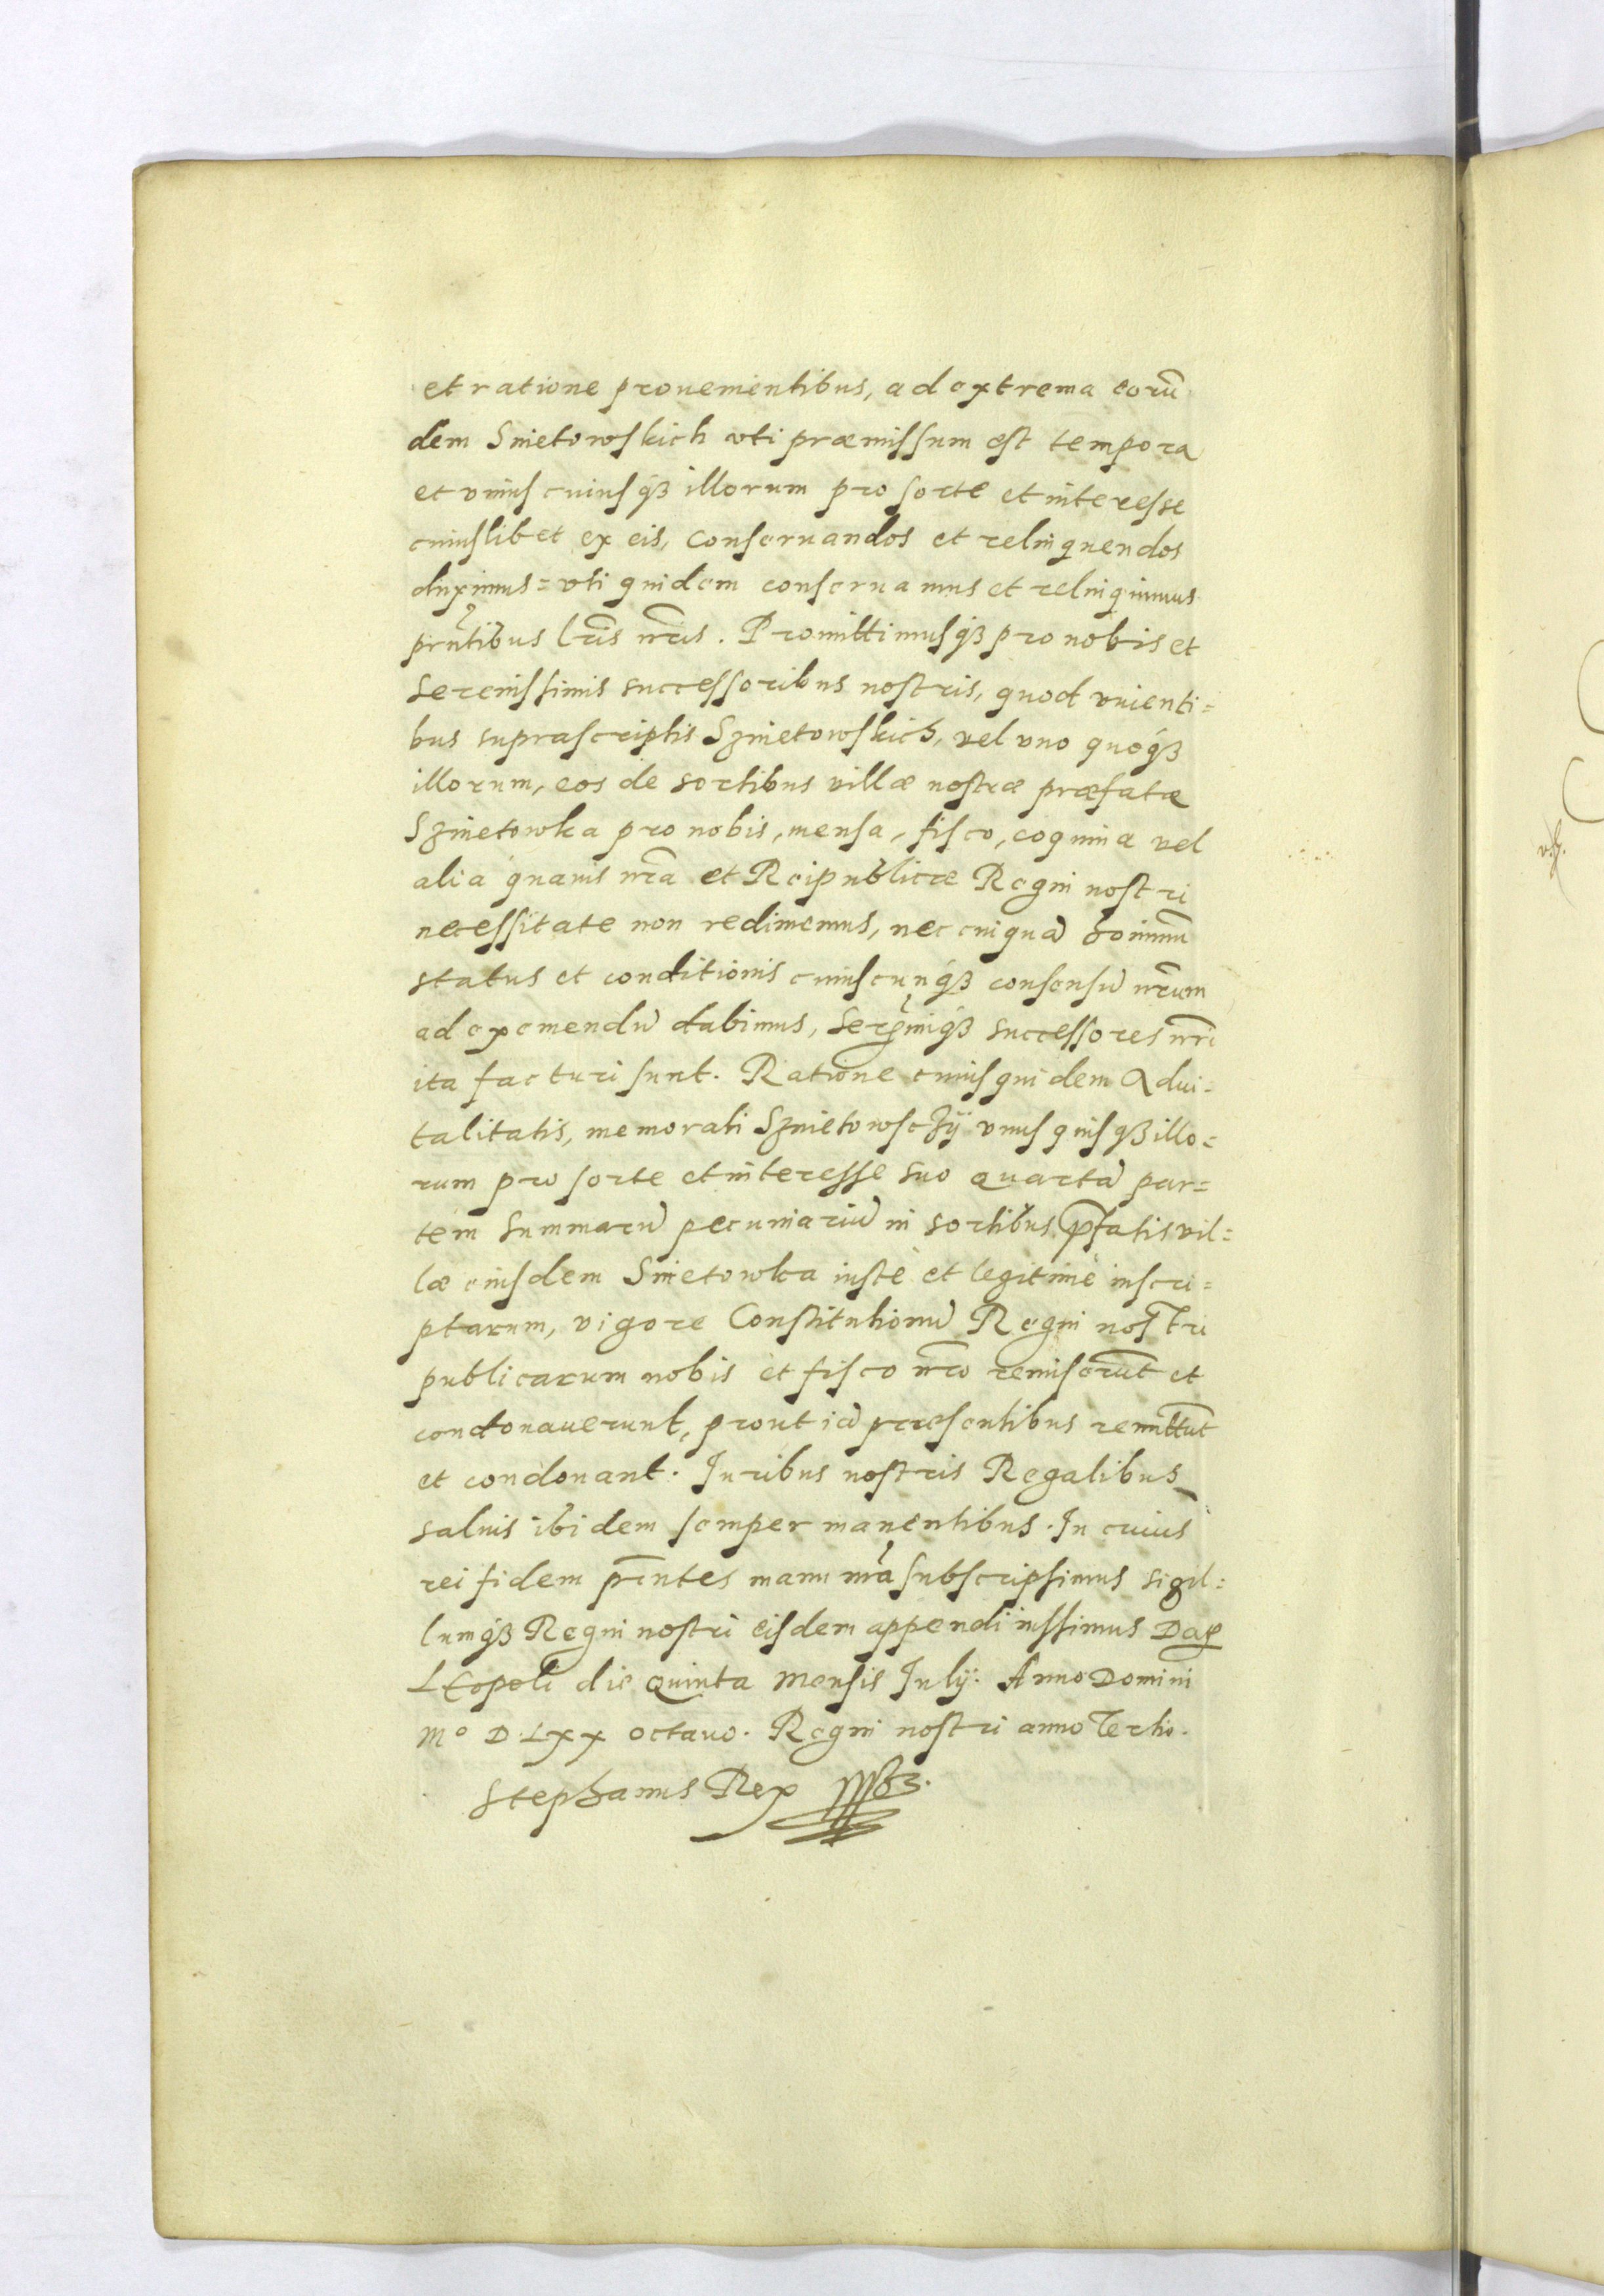 et ratione prouenientibus, ad extrema eorū
dem Snietowskich vti præmissum est tempora
et vnius cuiusq₃ illorum pro sorte et interesse
cuiuslibet ex eis, conseruandos et relinquendos
duximus = vti quidem conseruamus et relinquimus
pr̃ntibus l̃ris n̄ris. Promittimusq₃ pro nobis et
Serenissimis successoribus nostris, quod viuenti=
bus suprascriptis Sznietowskich, vel vno quoq₃
illorum, eos de sortibus villæ nostræ præfatæ
Sznietowka pro nobis, mensa, fisco, coquina vel
alia quauis n̄ra et Reipublicæ Regni nostri
necessitate non redimemus, nec cuiquā hominū
status et conditionis cuiuscunq₃ consensū n̄rum
ad exemendū dabimus, Ser̃miq₃ successores n̄ri
ita facturi sunt. Ratione cuius quidem Adui=
talitatis, memorati Sznietowsczÿ vnus quisq₃ illo=
rum pro sorte et interesse suo quartā par=
tem summarū pecuniariū in sortibus p̄fatis vil=
læ eiusdem Snietowka iustè et legitimè inscri=
ptarum, vigore Constitutionū Regni nostri
publicarum nobis et fisco n̄ro remiserūt et
condonauerunt, prout iā præsentibus remittūt
et condonant. Iuribus nostris Regalibus
saluis ibidem semper manentibus. In cuius
rei fidem p̄ntes manu n̄ra subscripsimus sigil=
lumq₃ Regni nostri eisdem appendi iussimus Dat̃
Leopoli die quinta mensis Iulÿ. Anno Domini
M° D LXX octauo. Regni nostri anno Tertio.
Stephanus Rex sst.